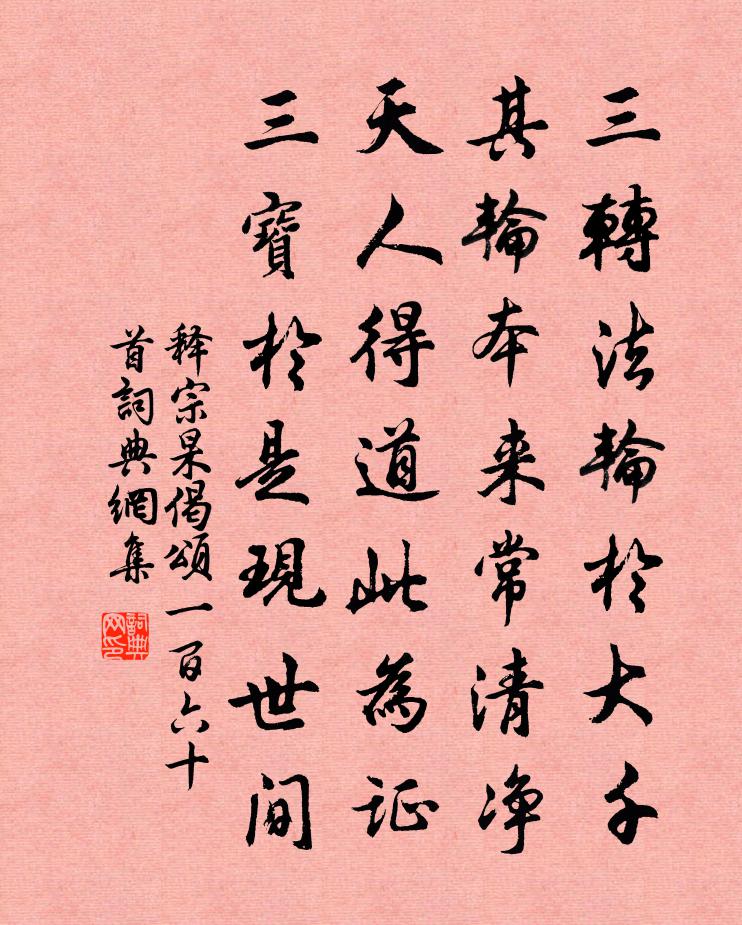 三轉法輪於大千
其輪本来常清净
天人得道此為证
三寶於是現世间
释宗杲偈頌一百六十
首詞典網集
詞典网印